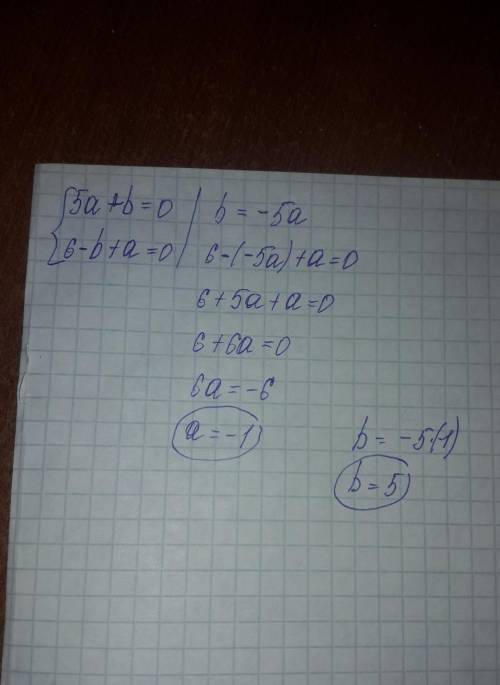 {5a+b=0 | b = -5a
{6-b+a=0 | 6-(-5a)+a=0
6+5a+a=0
6+6a=0
6a=-6
a=-1
b = -5·(-1)
b=5